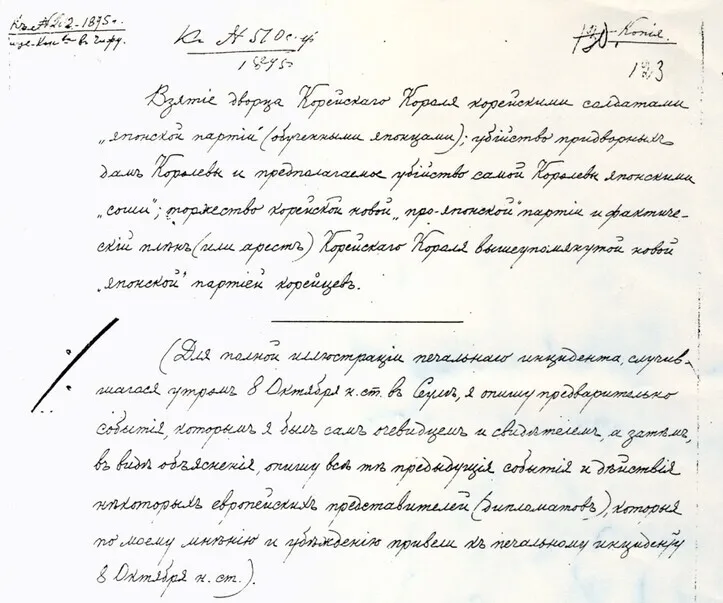 Къ № 2-1895 г.
въ Чифу.
Къ № 510 с. г.
1895
Копія.
123
Взятіе дворца Корейскаго Короля корейскими солдатами
„японской партіи“ (обученными японцами); убійство придворныхъ
дамъ Королевы и предполагаемое убійство самой Королевы японскими
„соши“; торжество корейской новой „про-японской“ партіи и фактиче-
скій плѣнъ (или арестъ) Корейскаго Короля вышеупомянутой новой
„японской“ партіей корейцевъ.
(Для полной иллюстраціи печальнаго инцидента, случив-
шагося утромъ 8 Октября н. ст. въ Сеулѣ, я опишу предварительно
событія, которымъ я былъ самъ очевидцемъ и свидѣтелемъ, а затѣмъ,
въ видѣ объясненія, опишу всѣ тѣ предыдущія событія и дѣйствія
нѣкоторыхъ европейскихъ представителей (дипломатовъ), которыя
по моему мнѣнію и убѣжденію привели къ печальному инциденту
8 Октября н. ст.).